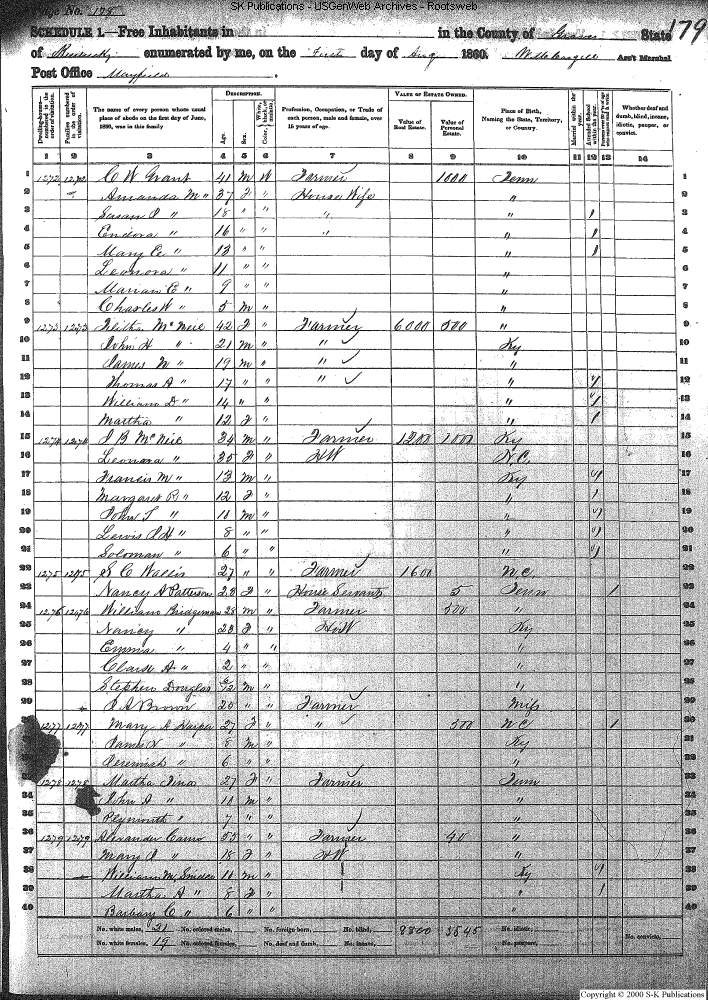 SK Publications - USGenWeb Archives - Rootsweb
Page No. 178
179
SCHEDULE 1.—Free Inhabitants in in the County of Graves State
of Kentucky enumerated by me, on the First day of Aug 1860. Ass't Marshal
Post Office Mayfield.
Dwelling-houses—numbered in the order of visitation.
Families numbered in the order of visitation.
The name of every person whose usual place of abode on the first day of June, 1860, was in this family
DESCRIPTION.
Age.
Sex.
Color,
Profession, Occupation, or Trade of each person, male and female, over 15 years of age.
VALUE OF ESTATE OWNED.
Value of Real Estate.
Value of Personal Estate.
Place of Birth, Naming the State, Territory, or Country.
Married within the year.
Attended School within the year.
Whether deaf and dumb, blind, insane, idiotic, pauper, or convict.
1 2 3 4 5 6 7 8 9 10 11 12 13 14
1 1272 1272 C W Grant 41 M W Farmer 1000 Tenn 1
2 Amanda M " 37 F " House Wife " 2
3 Susan " 18 " " " " 1 3
4 Endora " 16 " " " " 1 4
5 Mary E " 13 " " " 1 5
6 Leonora " 11 " " " 6
7 Marian E " 9 " " " 7
8 Charles W " 5 M " " 8
9 1273 1273 McNeil 42 F " Farmer 6000 500 " 9
10 John H " 21 M " " Ky 10
11 James M " 19 M " " " 11
12 Thomas A " 17 " " " " 1 12
13 William D " 14 " " " 1 13
14 Martha " 12 F " " 1 14
15 1274 1274 J B McNeil 34 M " Farmer 1200 1000 Ky 15
16 Leonora " 35 F " HW N.C. 16
17 Francis M " 13 M " Ky 1 17
18 Margaret R " 12 F " " 1 18
19 John T " 11 M " " 1 19
20 Lewis P H " 8 " " " 1 20
21 Soloman " 6 " " " 1 21
22 1275 1275 S C Wallis 27 " " Farmer 1600 N.C. 22
23 Nancy A Patterson 23 F " House Servant 5 Tenn 1 23
24 1276 1276 William Bridgeman 28 M " Farmer 500 " 24
25 Nancy " 23 F " HW Ky 25
26 Emma " 4 " " " 26
27 A " 2 " " " 27
28 Stephen Douglas 6/12 M " " 28
29 Brown 20 " " Farmer Miss 29
1277 1277 Mary A Harper 27 F " " 500 N C 1 30
James " 8 M " Ky 31
Jeremiah " 6 " " " 32
1278 1278 Martha 27 F " Farmer Tenn 33
34 John A " 11 M " " 34
35 Plymouth " 7 " " " 35
36 1279 1279 Alexander 55 " " Farmer 40 " 36
37 Mary J " 18 F " HW " 37
38 William M 11 M " Ky 1 38
39 Martha A " 8 F " " 1 39
40 Barbary C " 6 " " " 40
No. white males, 21 No. colored males, No. foreign born, No. blind, 8800 3545 No. idiotic, No. convicts,
No. white females, 19 No. colored females, No. deaf and dumb, No. insane, No. paupers,
Copyright © 2000 S-K Publications